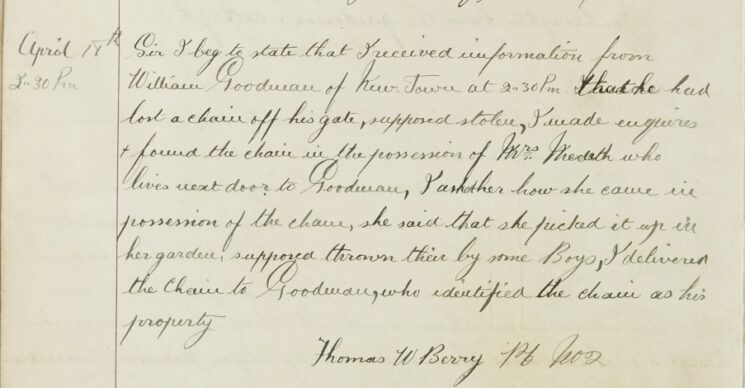 April 18th Sir I beg to state that I received information from
2-30 Pm William Goodman of Kew Town at 2-30 Pm. that he had
lost a chain off his gate, supposed stolen, I made enquires
+ found the chain in the possession of Mrs. Meredith who
lives next door to Goodman, I asked her how she came in
possession of the chain, she said that she picked it up in
her garden, supposed thrown their by some Boys, I delivered
the Chain to Goodman, who identified the chain as his
property
Thomas W Berry PC No 2